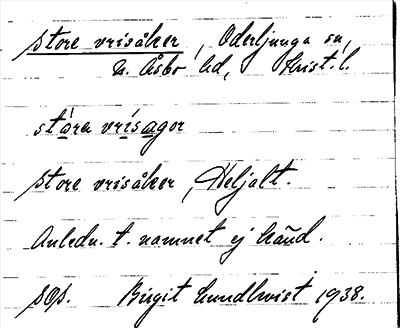 store vrisåker, Oderljunga sn,
N. Åsbo hd, Krist. l.
stårer vrisagor
store vrisåker,
Anledn. t. namnet ej känd.
sOp. Birgit Lundkvist 1938.